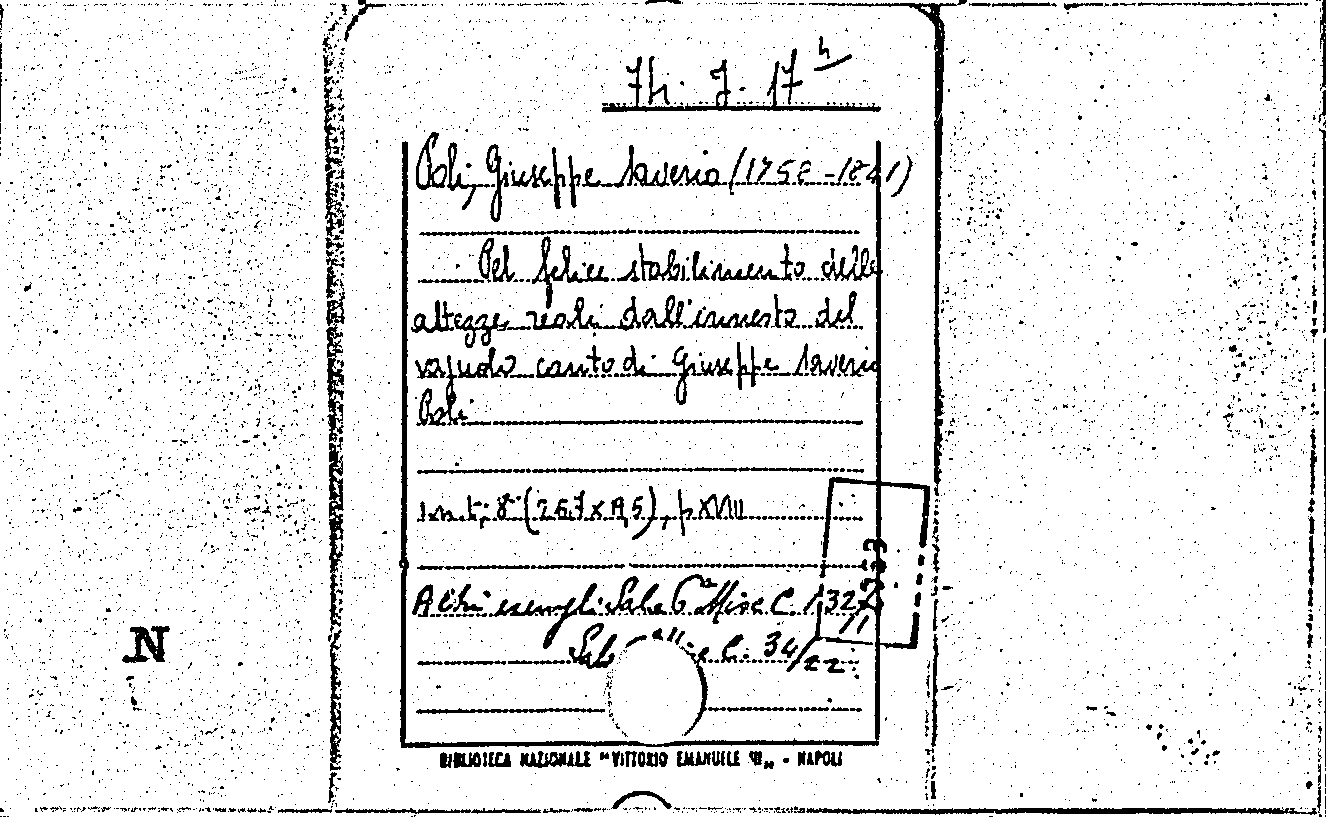 74. J. 17 h
Poli, Giuseppe Saverio (1758-1841)
Pel felice stabilimento delle
altezze reali dall'innesto del
vajuolo canto di Giuseppe Saverio
Poli
s.n.t., 8° (26,7 x 19,5), p. XVIII
Altri esempl: Sala 6ª Misc C. 132/11
Sala C. 34/22
N
BIBLIOTECA NAZIONALE "VITTORIO EMANUELE III" - NAPOLI